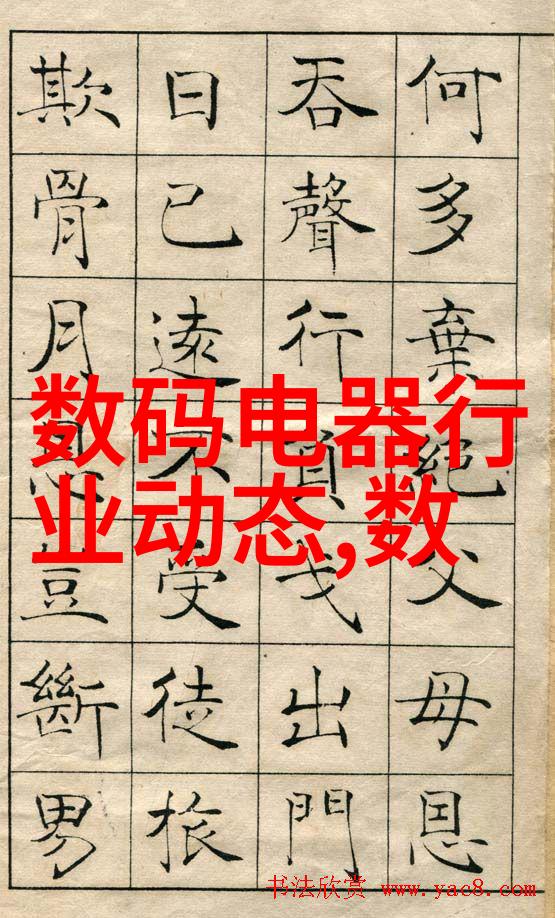 何多棄絕父母恩
吞聲行負戈出門
日已遠不受徒旅
欺骨月恩豈斷男
数码电器行
业动态,数
书法欣赏 www.yac8.com